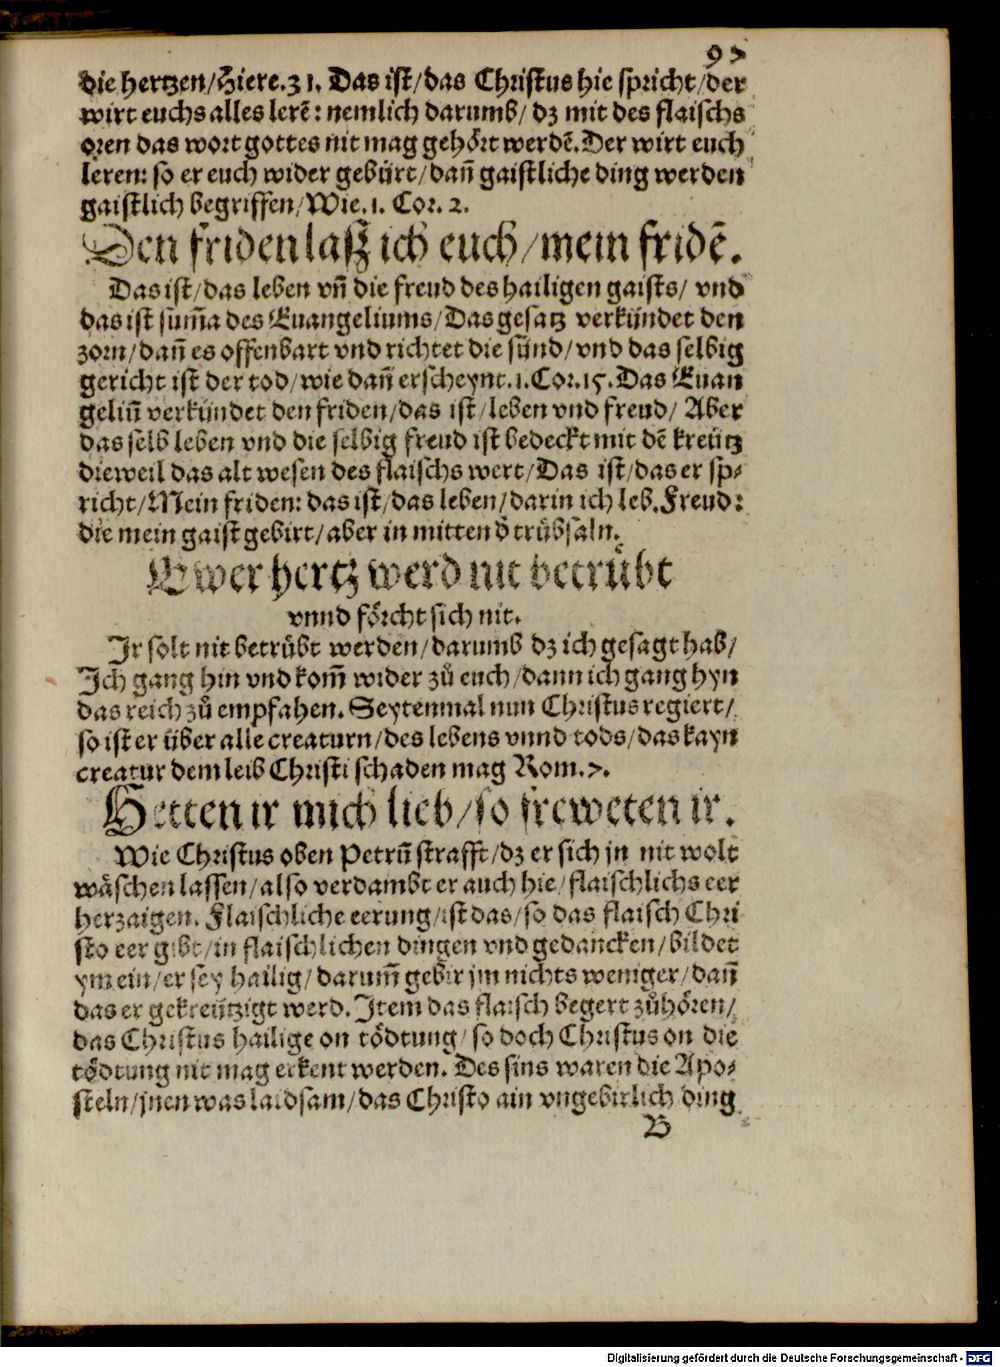 97
die hertzen/Hiere.31. Das ist/das Christus hie spricht/der
wirt euchs alles lerē: nemlich darumb/ dz mit des flaischs
oren das wort gottes nit mag gehört werdē. Der wirt euch
leren: so er euch wider gebürt/dañ gaistliche ding werden
gaistlich begriffen/Wie.1. Cor. 2.
Den friden laß ich euch/mein fridē.
Das ist/das leben vñ die freud des hailigen gaists/ vnd
das ist sum̄a des Euangeliums/Das gesatz verkündet den
zorn/dañ es offenbart vnd richtet die sünd/vnd das selbig
gericht ist der tod/wie dañ erscheynt.1.Cor.15. Das Euan
geliū verkündet den friden/das ist/leben vnd freud/ Aber
das selb leben vnd die selbig freud ist bedeckt mit dē kreütz
dieweil das alt wesen des flaischs wert/Das ist/das er sp⸗
richt/Mein friden: das ist/das leben/darin ich leb. Freud:
die mein gaist gebirt/aber in mitten d̄ trübsaln.
Ewer hertz werd nit betrůbt
vnnd förcht sich nit.
Jr solt nit betrůbt werden/darumb dz ich gesagt hab/
Jch gang hin vnd kom̄ wider zů euch/dann ich gang hyn
das reich zů empfahen. Seytenmal nun Christus regiert/
so ist er über alle creaturn/des lebens vnnd tods/das kayn
creatur dem leib Christi schaden mag Rom.7.
Hetten ir mich lieb/so freweten ir.
Wie Christus oben Petrū strafft/dz er sich jn nit wolt
wäschen lassen/also verdambt er auch hie/flaischlichs eer
herzaigen. Flaischliche eerung/ist das/so das flaisch Chri
sto eer gibt/in flaischlichen dingen vnd gedancken/bildet
ym ein/er sey hailig/darum̄ gebir jm nichts weniger/dañ
das er gekreützigt werd. Jtem das flaisch begert zůhören/
das Christus hailige on tödtung/so doch Christus on die
tödtung nit mag erkent werden. Des sins waren die Apo⸗
steln/jnen was laidsam/das Christo ain vngebirlich ding
B
Digitalisierung gefördert durch die Deutsche Forschungsgemeinschaft - DFG